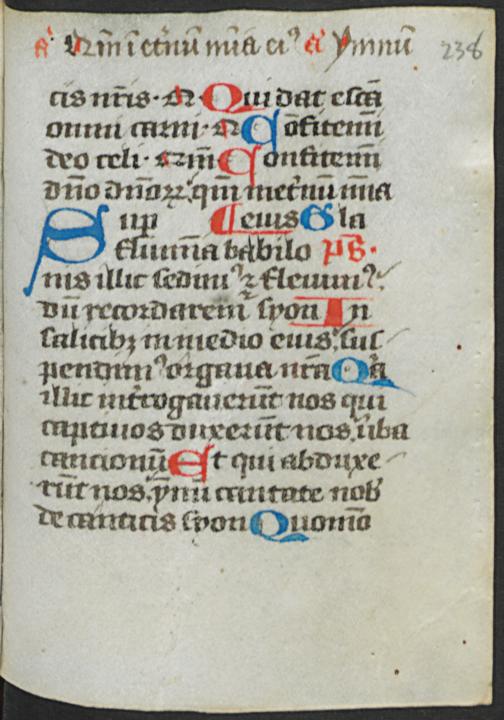 a̾ Qr̄m ī et̾nū mīa ei⁹ a̾ Ymnū 238
cis nr̄is. Qr̄ Qui dat escā
omni carni. Qr̄ Cōfitemī
deo celi. Qr̄m Confitemī
dn̄o dn̄oꝝ. qm̄ i et̾nū mīa
Suꝑ eius Gla
flumīa babilo ps̄.
nis illic sedim⁹ ⁊ flevim⁹.
dū recordarem̄ syon In
salicibꝫ in medio eius. sus
pendim⁹ organa nr̄a Qa
illic int̾rogauerūt nos qui
captiuos duxerūt nos. v̾ba
cancionū Et qui abduxe
rūt nos. ymnū cantate nob̾
de canticis syon Quomō